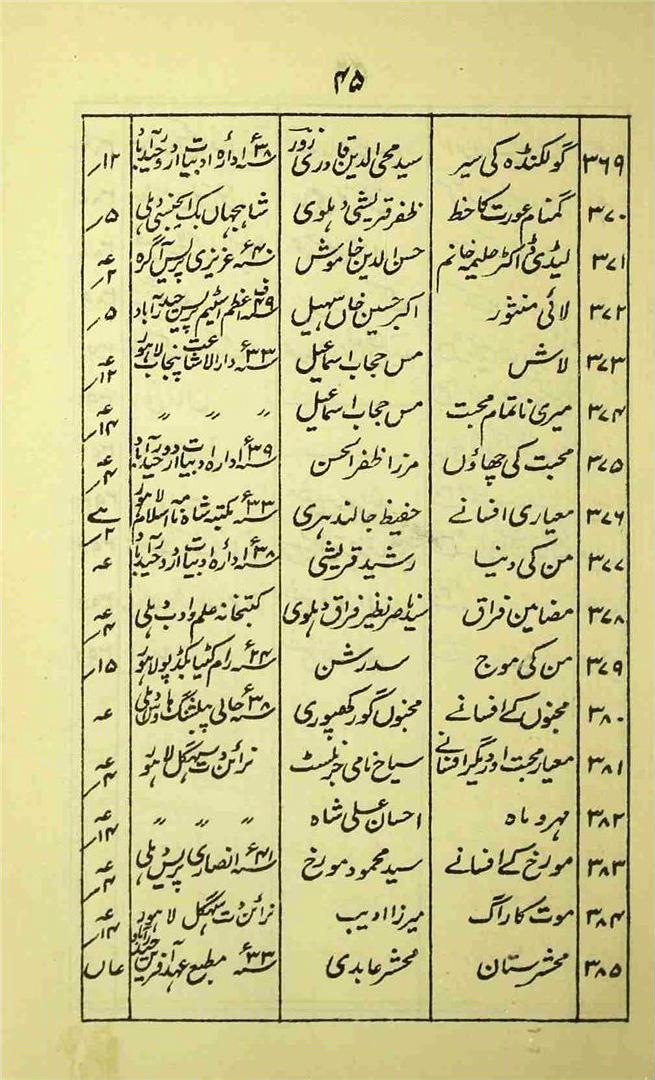 ۴۵
۳۶۹ گولکنڈہ کی سیر سید محی الدین قادری زور ۳۸ء ادارہ ادبیات اردو حیدرآباد ۱۲ر
۳۷۰ گمنام عورت کا خط ظفر قریشی دہلوی شاہجہاں بک ایجنسی دہلی ۵ر
۳۷۱ لیڈی ڈاکٹر حلیمہ خانم حسن الدین خاموش ۴۰ء عزیزی پریس آگرہ
۳۷۲ لائی منثور اکبر حسین خاں سہیل ۴۹ف اعظم اسٹیم پریس حیدرآباد ۵ر
۳۷۳ لاش مس حجاب اسماعیل ۳۳ء دارالاشاعت پنجاب لاہور
۳۷۴ میری ناتمام محبت مس حجاب اسماعیل 〃 〃 〃
۳۷۵ محبت کی چھاؤں مرزا ظفر الحسن ۳۹ء ادارہ ادبیات اردو حیدرآباد
۳۷۶ معیاری افسانے حفیظ جالندہری ۳۳ء مکتبہ شاہ نامہ اسلام لاہور
۳۷۷ من کی دنیا رشید قریشی ۳۸ء ادارہ ادبیات اردو حیدرآباد عہ
۳۷۸ مضامین فراق سید ناصر نظیر فراق دہلوی کتبخانہ علم و ادب دہلی
۳۷۹ من کی موج سدرشن ۲۴ء رام کٹیا بکڈپو لاہور ۱۵ر
۳۸۰ مجنوں کے افسانے مجنوں گورکھپوری ۳۸ء حالی پبلشنگ ہاوس دہلی عہ
۳۸۱ معیار محبت اور دیگر افسانے سیاح نامی جرنلسٹ نرائن دت سہگل لاہور
۳۸۲ مہر و ماہ احسان علی شاہ 〃 〃 〃
۳۸۳ مورخ کے افسانے سید محمود مورخ ۴۱ء انصاری پریس دہلی
۳۸۴ موت کا راگ میرزا ادیب نرائن دت سہگل لاہور
۳۸۵ محشرستان محشر عابدی ۳۳ء مطبع عہد آفرین حیدرآباد